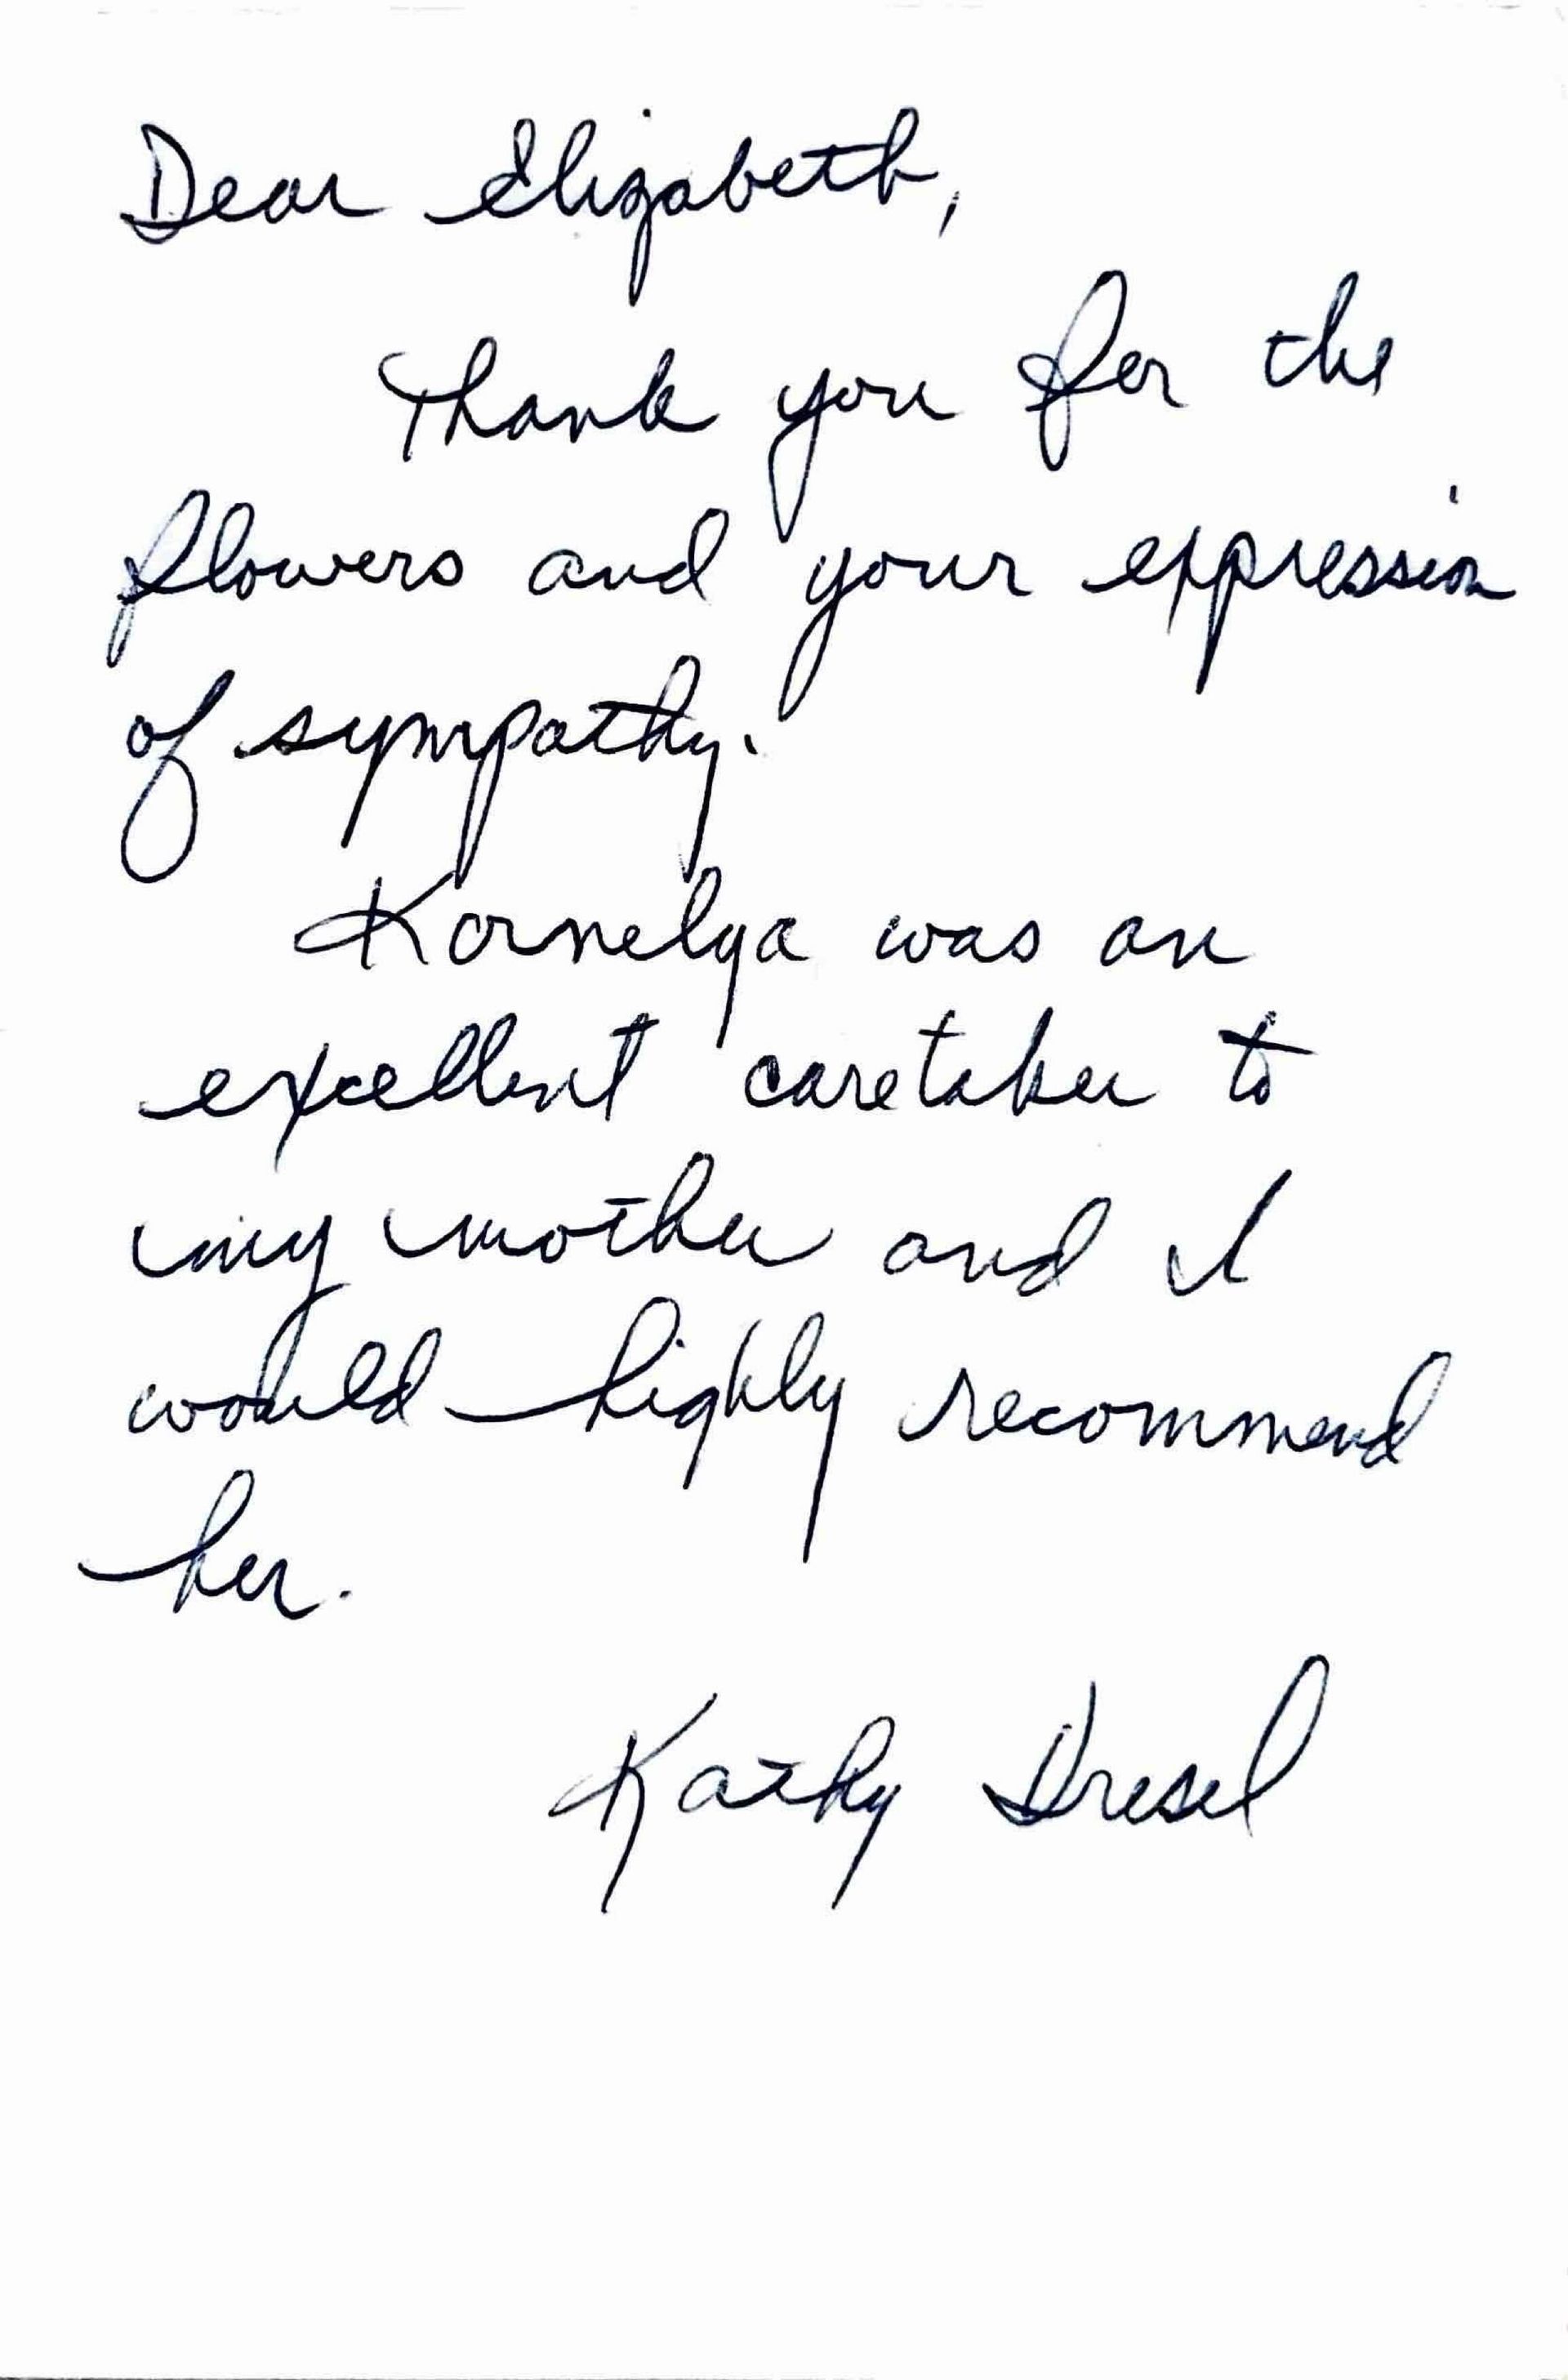 Dear Elizabeth,
Thank you for the
flowers and your expression
of sympathy.
Kornelya was an
excellent caretaker to
my mother and I
would highly recommend
her.
Kathy Dresel